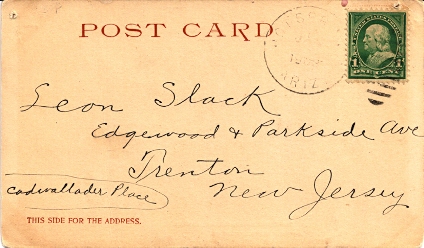 POST CARD
ARIZ
1 ONE CENT 1
Leon Slack
Edgewood & Parkside Ave
Trenton
New Jersey
Cadwallader Place
THIS SIDE FOR THE ADDRESS.